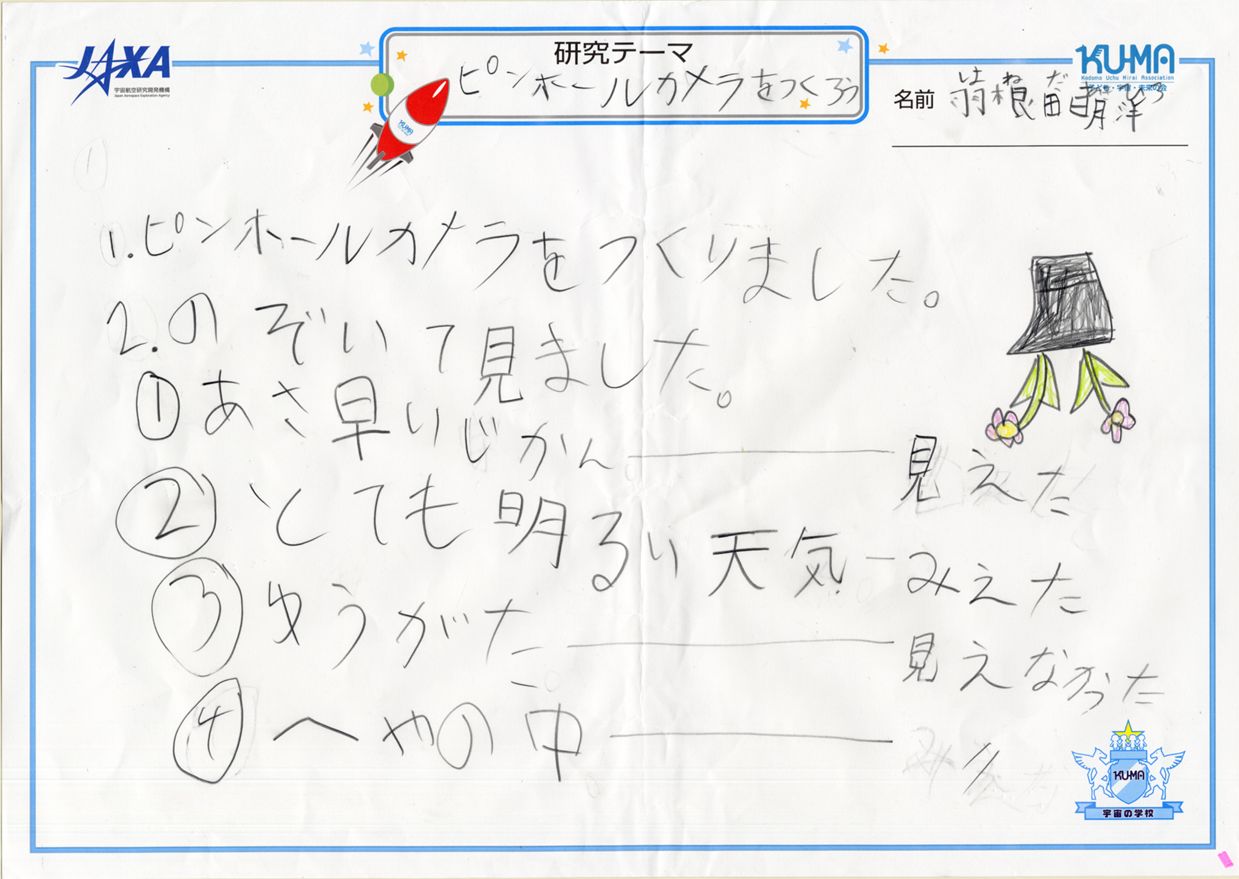 JAXA
宇宙航空研究開発機構
Japan Aerospace Exploration Agency
研究テーマ
ピンホールカメラをつくろう
KU-MA
Kodomo Uchu Mirai Association
子ども・宇宙・未来の会
名前
はねだ
羽根田明洋
KU-MA
1.ピンホールカメラをつくりました。
2.のぞいて見ました。
①あさ早いじかん 見えた
②とても明るい天気 みえた
③ゆうがた 見えなかった
④へやの中 〃
KU-MA
宇宙の学校